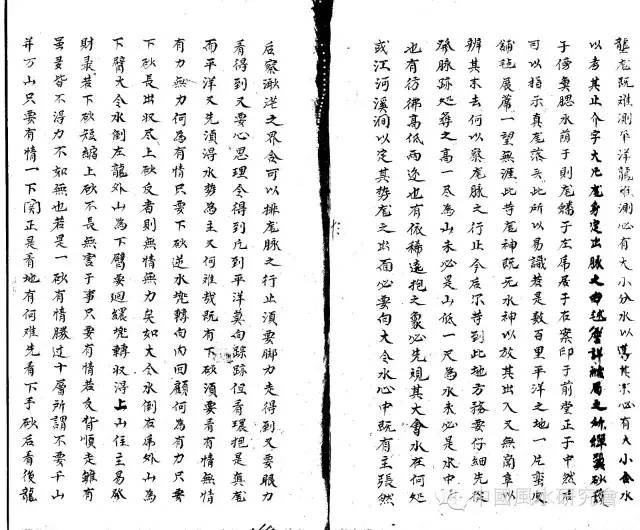 龍虎既难測平洋龍难測必有大小分水以
以考其止介字大凡龙身定出脉之
于傍要腮水荫于則龙蟠于左帝居于右案印于前堂正于中然
可以指示真龙落头此所以易識若是数百里平洋之地一片
舖毡展蓆一望無涯此等龙神既无水神以放其出入又無崗阜以
辨其来去何以察龙脉之行止今后尔等到此地方務要仔細先從
脉跡处尋之高一尺為山未必是山低一尺為水未必是水中
也有彷彿高低两迹也有依稀遠抱之象必先观其大會水在何处
或江河溪澗以定其势龙之出面必要向大合水心中既有主張然
后察溆浜之界合可以排龙脉之行止須要脚力走得到又要眼力
看得到又要心思理会得到凡到平洋莫向踪踪但看環抱是真龙
而平洋又先須得水势為主又何难哉既有下砂須要看有情無情
有力無力何為有情只要下砂逆水塊轉向内回顧何為有力只要
下砂長出収尽上砂反者則無情無力矣如大合水倒右帝外山為
下臂大合水倒左龍外山為下臂要迴繯塊轉収得上山住主易砍
財录若下砂短縮上砂不長無害于事只要有情若反背順走雖有
虽妟皆不得力不如無也若是一砂有情勝过十層所謂不要千山
并万山只要有情一下関正是看地有何难先看下手砂后看後龍
國風水研究會